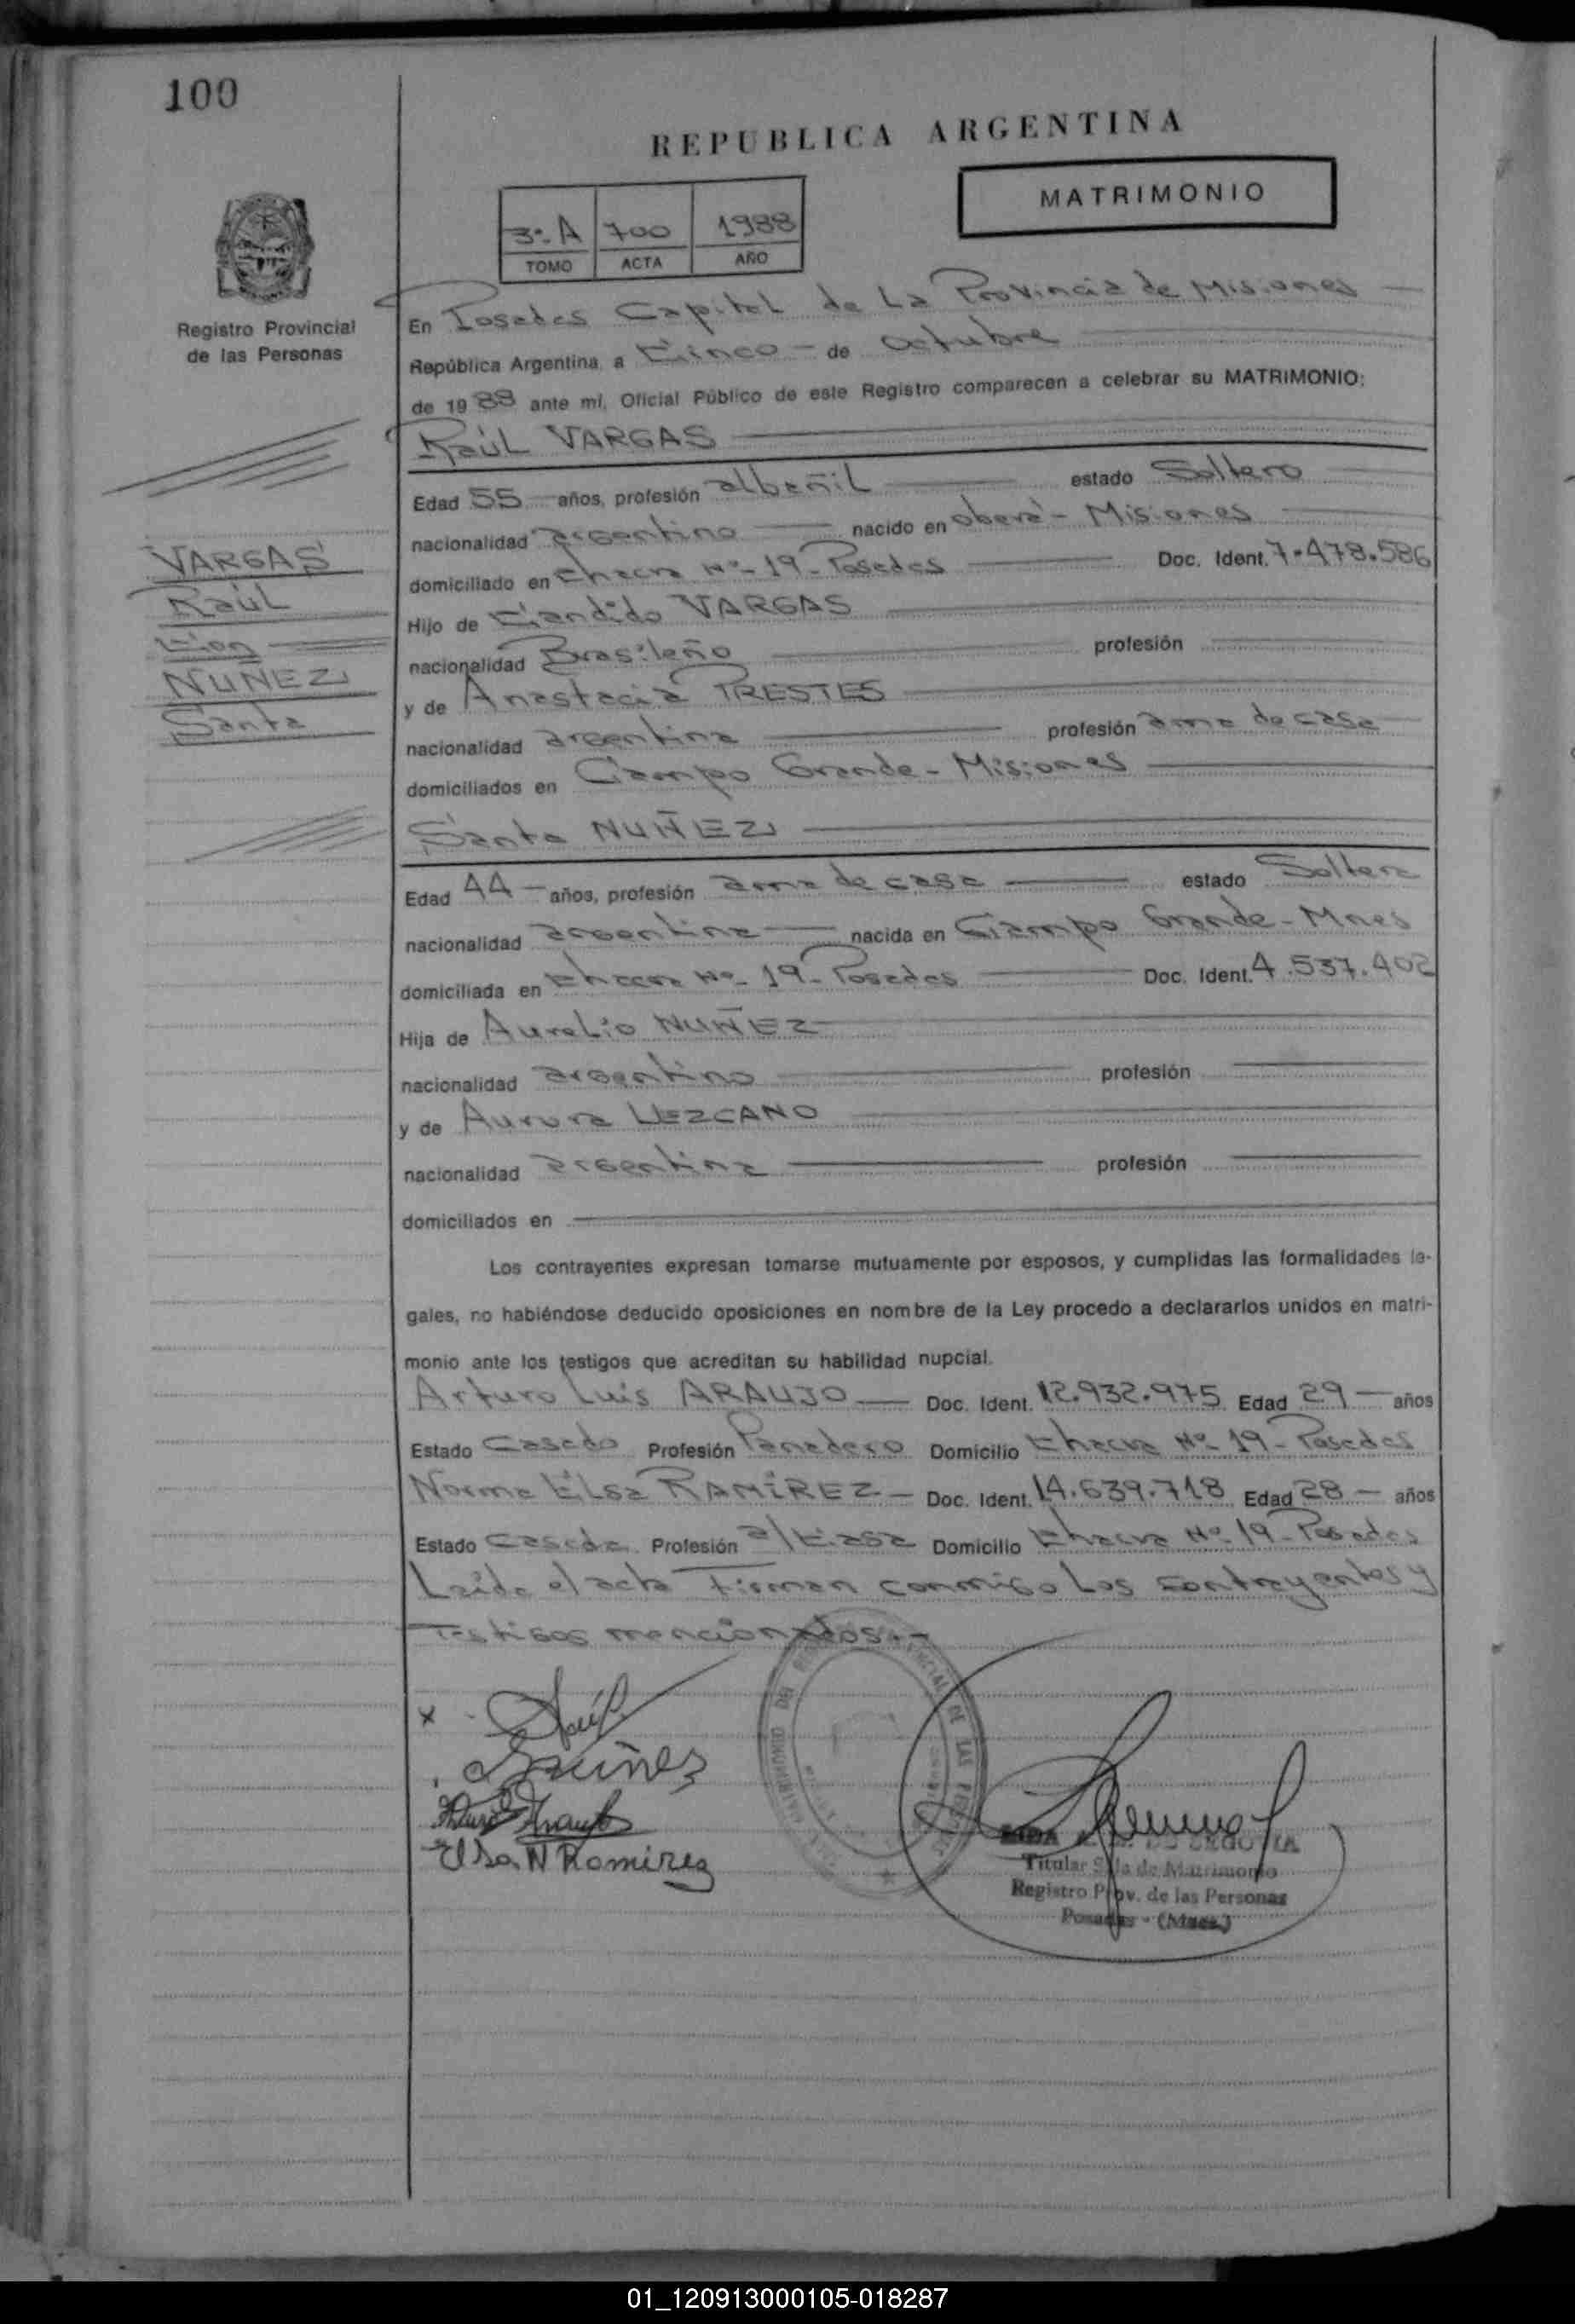 100
REPUBLICA ARGENTINA
MATRIMONIO
3º A 700 1988
TOMO ACTA AÑO
Registro Provincial
de las Personas
En Posadas Capital de La Provincia de Misiones
República Argentina, a Cinco - de Octubre
de 1988 ante mí, Oficial Público de este Registro comparecen a celebrar su MATRIMONIO:
Raúl VARGAS
Edad 55 años, profesión albañil estado Soltero
nacionalidad argentino nacido en oberá - Misiones
domiciliado en Chacra Nº 19 - Posadas Doc. Ident. 7.478.586
Hijo de Cándido VARGAS
nacionalidad Brasileño profesión
y de Anastacia PRESTES
nacionalidad argentina profesión ama de casa
domiciliados en Campo Grande - Misiones
VARGAS
Raúl
Con
NUÑEZ
Santa
Santa NUÑEZ
Edad 44 - años, profesión ama de casa estado Soltera
nacionalidad argentina nacida en Campo Grande - Mnes
domiciliada en Chacra Nº 19 - Posadas Doc. Ident. 4.537.402
Hija de Aurelio NUÑEZ
nacionalidad argentino profesión
y de Aurora LEZCANO
nacionalidad argentina profesión
domiciliados en
Los contrayentes expresan tomarse mutuamente por esposos, y cumplidas las formalidades le-
gales, no habiéndose deducido oposiciones en nombre de la Ley procedo a declararlos unidos en matri-
monio ante los testigos que acreditan su habilidad nupcial.
Arturo Luis ARAUJO - Doc. Ident. 12.932.975 Edad 29 - años
Estado Casado Profesión Panadero Domicilio Chacra Nº 19 - Posadas
Norma Elsa RAMÍREZ - Doc. Ident. 14.639.718 Edad 28 - años
Estado Casada Profesión a/Casa Domicilio Chacra Nº 19 - Posadas
Leída el acta Firman conmigo Los contrayentes y
Testigos mencionados.-
x Raúl
S Nuñez
Araujo
Elsa N Ramirez
DE SEGOVIA
Titular Sala de Matrimonio
Registro Prov. de las Personas
Posadas - (Mnes.)
01_120913000105-018287